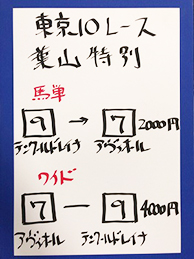 東京10レース
葉山特別
馬単
9 → 7 2000円
テンワールドレイナ アヴァオール
ワイド
7 ー 9 4000円
アヴァオール テンワールドレイナ